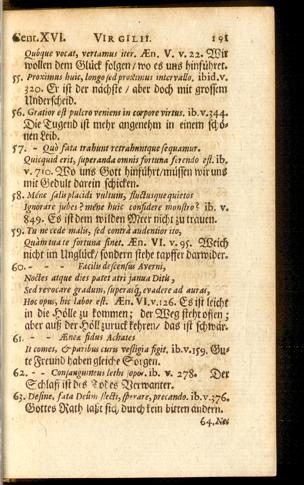 Cent. XVI. VIRGILII. 191
Quòque vocat, vertamus iter. Æn. V. v. 22. Wir
wollen dem Glück folgen / wo es uns hinführet.
55. Proximus huic, longo sed proximus intervallo. ibid. v.
320. Er ist der nächste / aber doch mit grossem
Underscheid.
56. Gratior est pulcro veniens in corpore virtus. ib. v. 344.
Die Tugend ist mehr angenehm in einem schö-
nen Leib.
57. - Quò fata trahunt retrahuntque sequamur.
Quicquid erit, superanda omnis fortuna ferendo est. ib.
v. 710. Wo uns Gott hinführet / müssen wir uns
mit Gedult darein schicken.
58. Méne salis placidi vultum, fluctusque quietos
Ignorare jubes? méne huic confidere monstro? ib. v.
849. Es ist dem wilden Meer nicht zu trauen.
59. Tu ne cede malis, sed contrà audentior ito,
Quàm tua te fortuna sinet. Æn. VI. v. 95. Weich
nicht im Unglück / sondern stehe tapffer darwider.
60. - - - Facilis descensus Averni,
Noctes atque dies patet atri janua Ditis,
Sed revocare gradum, superasq; evadere ad auras,
Hoc opus, hic labor est. Æn. VI. v. 126. Es ist leicht
in die Hölle zu kommen; der Weg steht offen;
aber auß der Höll zuruck kehren / das ist schwär.
61. - - Æneæ fidus Achates
It comes, & paribus curis vestigia figit. ib. v. 159. Gu-
te Freund haben gleiche Sorgen.
62. - - Consanguineus lethi sopor. ib. v. 278. Der
Schlaff ist des Todes Verwanter.
63. Desine, fata Deûm flecti, sperare, precando. ib. v. 376.
Gottes Rath laßt sich durch kein bitten ändern.
64.